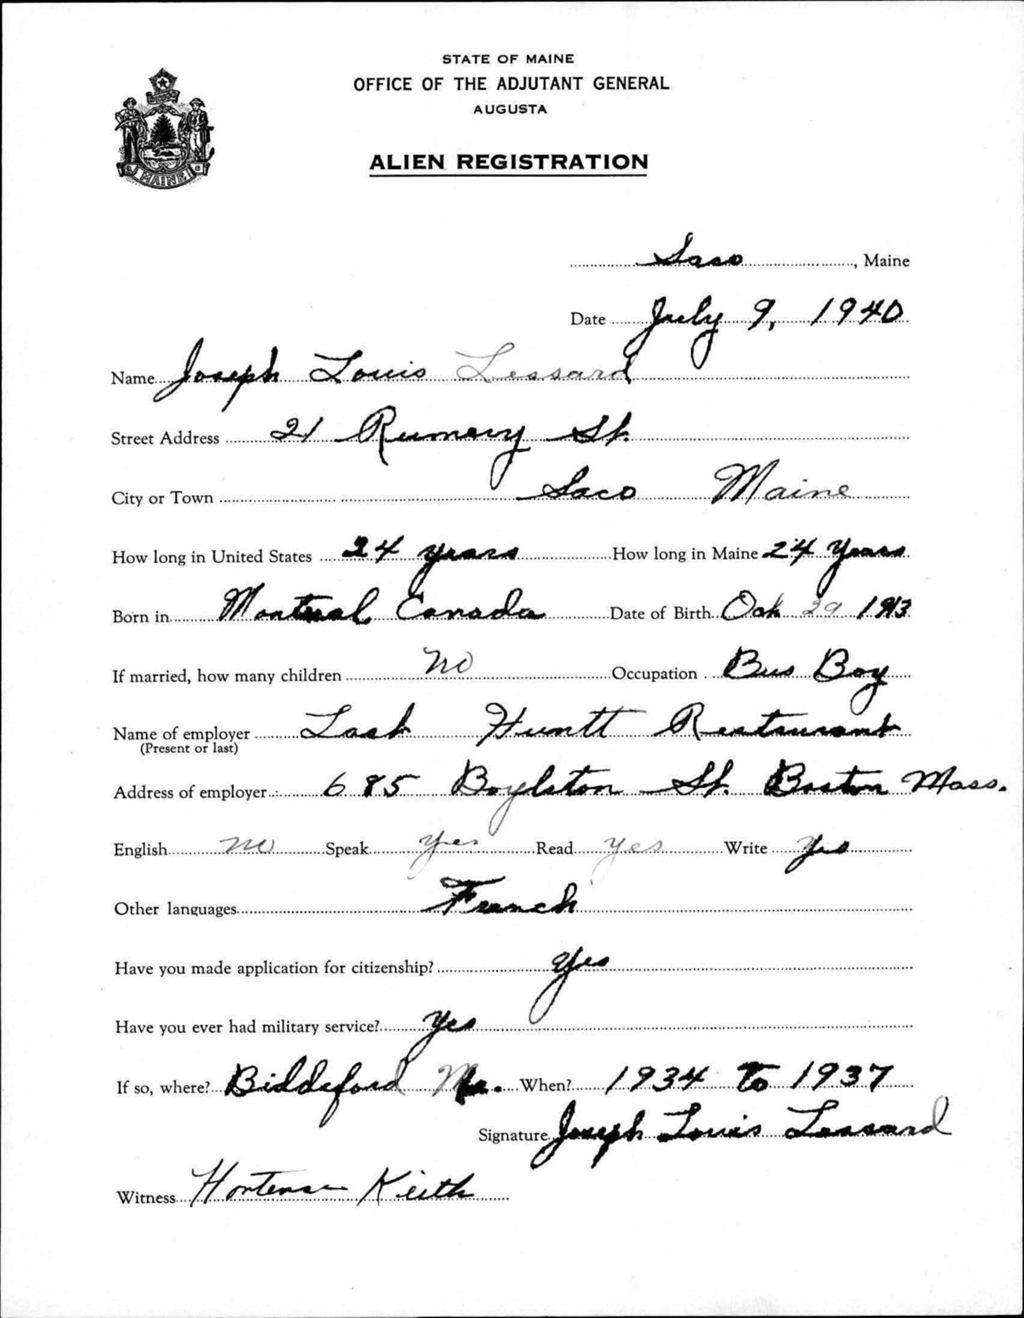 STATE OF MAINE
OFFICE OF THE ADJUTANT GENERAL
AUGUSTA
ALIEN REGISTRATION
MAINE
Saco, Maine
Date July 9, 1940
Name Joseph Louis Lessard
Street Address 21 Rumery St.
City or Town Saco Maine
How long in United States 24 years How long in Maine 24 Years
Born in Montreal Canada Date of Birth 29 1913
If married, how many children No Occupation Bus Boy
Name of employer Last Huntt Restaurant
(Present or last)
Address of employer 685 Boylston St. Boston Mass.
English no Speak yes Read yes Write Yes
Other languages French
Have you made application for citizenship? Yes
Have you ever had military service? Yes
If so, where? Biddeford Me. When? 1934 to 1937
Signature Joseph Louis Lessard
Witness Hortense Keith